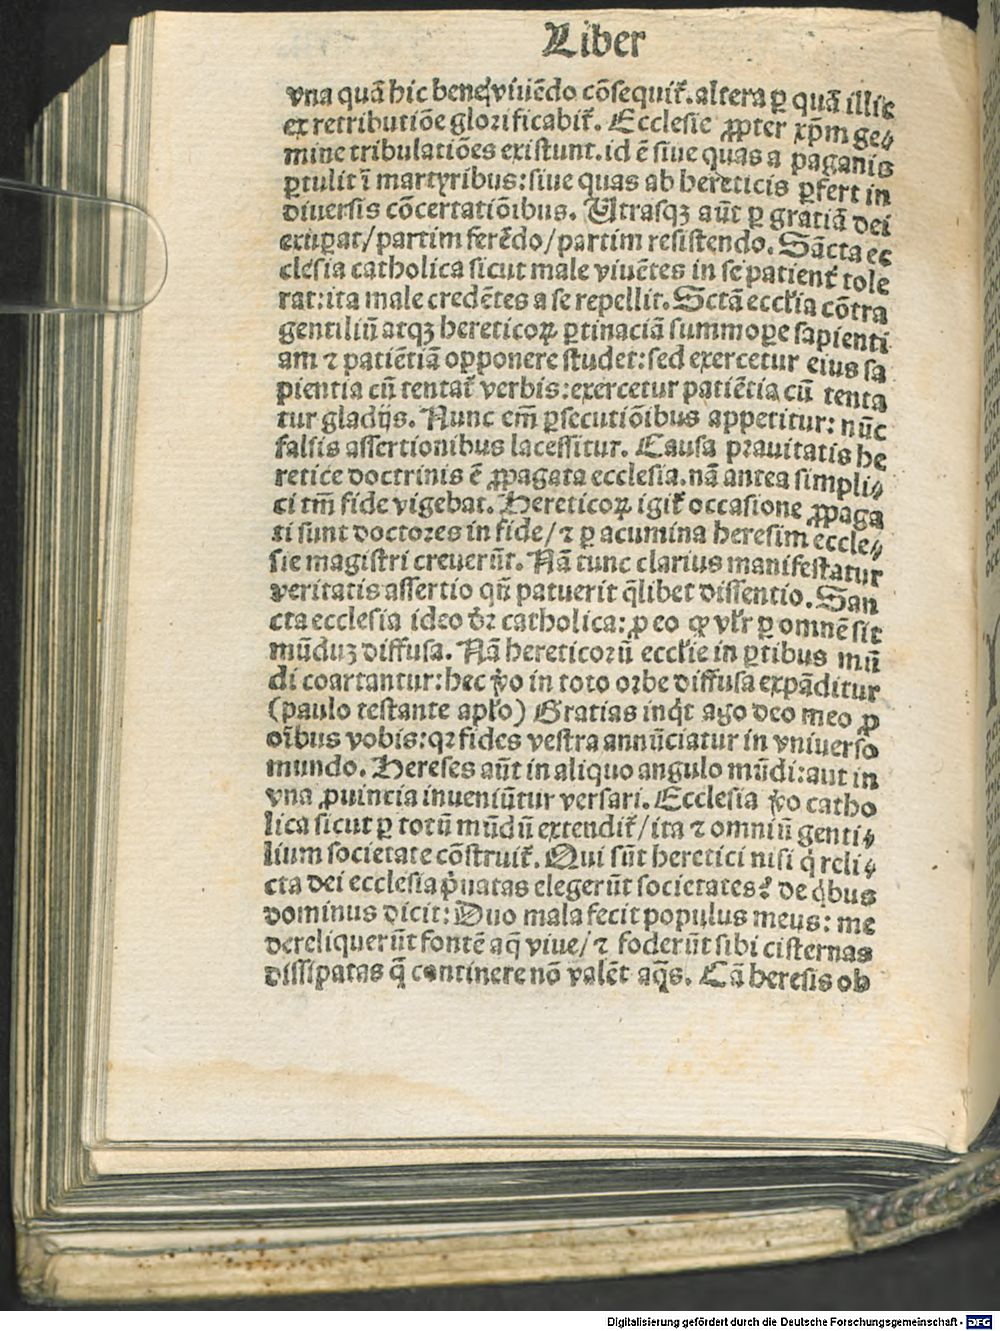 Liber
vna quā hic bene viuēdo cōsequit̃. altera ꝑ quā illic
ex retributiōe glorificabit̃. Ecclesie ꝓpter xp̄m ge⸗
mine tribulatiōes existunt. id ē siue quas a paganis
ꝑtulit ī martyribus: siue quas ab hereticis ꝑfert in
diuersis cōcertatiōibus. Utrasqꝫ aūt ꝑ gratiā dei
exuꝑat/ partim ferēdo/ partim resistendo. Sācta ec
clesia catholica sicut male viuētes in se patient̃ tole
rat: ita male credētes a se repellit. Sctā eccl̃ia cōtra
gentiliū atqꝫ hereticoꝝ ꝑtinaciā summoꝑe sapienti
am ⁊ patiētiā opponere studet: sed exercetur eius sa
pientia cū tentat̃ verbis: exercetur patiētia cū tenta
tur gladijs. Nunc em̄ ꝑsecutiōibus appetitur: nūc
falsis assertionibus lacessitur. Causa prauitatis he
retice doctrinis ē ꝓpagata ecclesia. nā antea simpli⸗
ci tm̄ fide vigebat. Hereticoꝝ igit̃ occasione ꝓpaga
ti sunt doctores in fide/ ⁊ ꝑ acumina heresim eccle⸗
sie magistri creuerūt. Nā tunc clarius manifestatur
veritatis assertio qn̄ patuerit q̄libet dissentio. San
cta ecclesia ideo dr̄ catholica: ꝓ eo ꝙ vl̃r ꝑ omnē sit
mūduꝫ diffusa. Nā hereticorū eccl̃ie in ꝑtibus mū
di coartantur: hec v̊o in toto orbe diffusa expāditur
(paulo testante apl̃o) Gratias inq̇t ago deo meo ꝓ
oībus vobis: qꝛ fides vestra annūciatur in vniuerso
mundo. Hereses aūt in aliquo angulo mūdi: aut in
vna ꝓuincia inueniūtur versari. Ecclesia v̊o catho
lica sicut ꝑ totū mūdū extendit̃/ ita ⁊ omniū genti⸗
lium societate cōstruit̃. Qui sūt heretici nisi q̇ reli⸗
cta dei ecclesia ṗuatas elegerūt societates? de q̇bus
dominus dicit: Duo mala fecit populus meus: me
dereliquerūt fontē aq̄ viue/ ⁊ foderūt sibi cisternas
dissipatas q̄ continere nō valēt aq̄s. Cā heresis ob
Digitalisierung gefördert durch die Deutsche Forschungsgemeinschaft - DFG